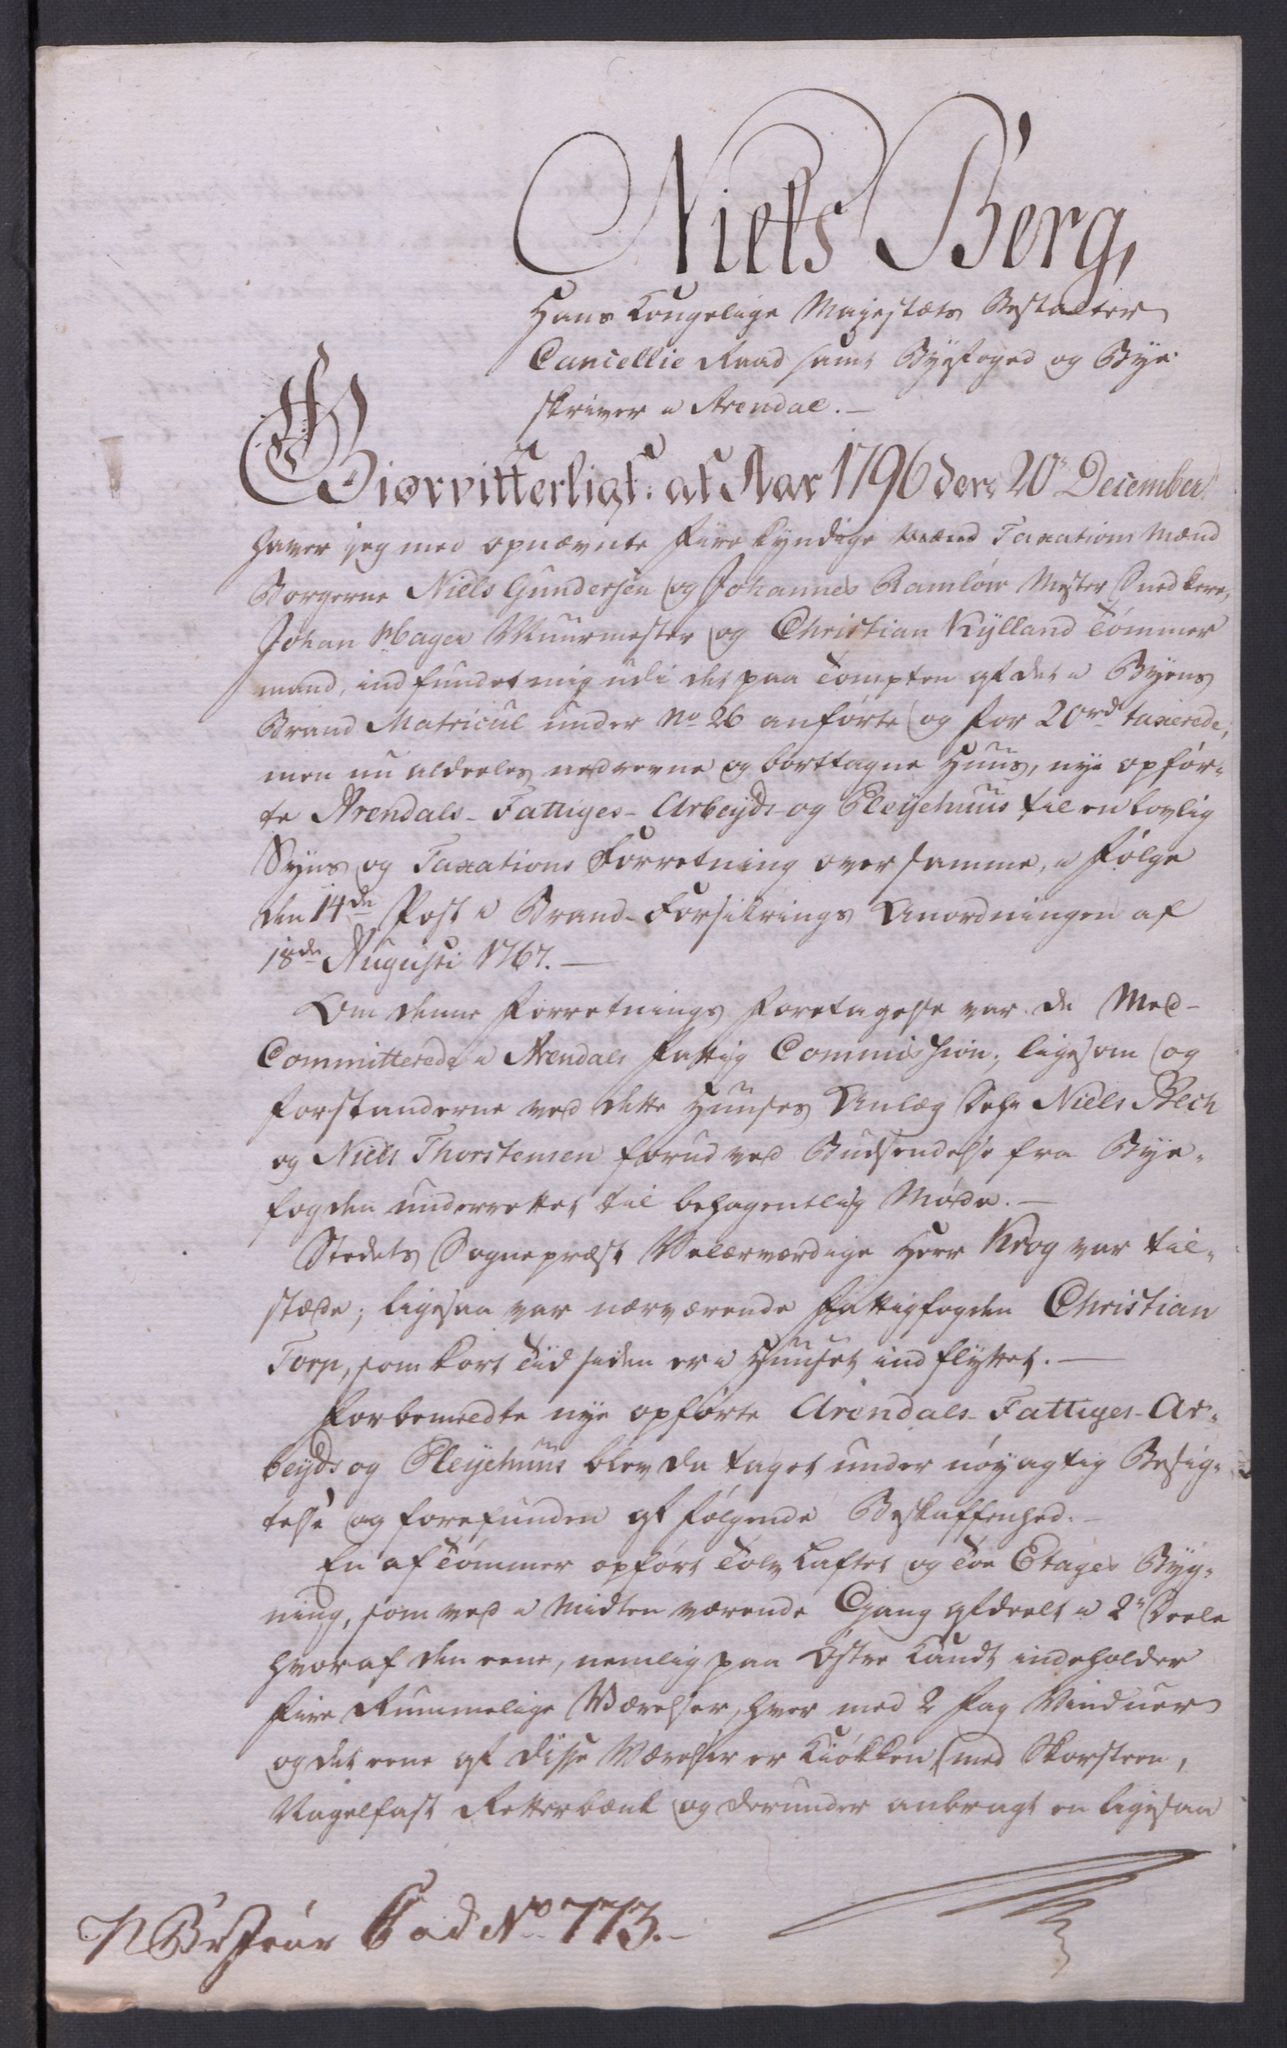 Niels Berg,
Hans Kongelige Mayestæts Bestalter
Cancellie Raad samt Byefoged og Bye-
skriver i Arendal. —
Giør vitterligt: at Aar 1796 den 20de December
haver jeg med opnævnte fiire kyndige Taxations Mænd
Borgerne Niels Gundersen og Johannes Ramlow Mester Snedkere,
Johan Hager Muurmester og Christian Kylland Tömmer
mand, indfundet mig udi det paa Tompten af det i Byens
Brand Matricul under No 26 anførte og for 20 rd taxerede,
men nu aldeeles nedrevne og borttagne Huus, nye opför-
te Arendals-Fattiges-Arbeyds- og Pleyehuus til en lovlig
Syns og Taxations Forretning over samme, i Følge
den 14de Post i Brand-Forsikrings Anordningen af
18de Augusti 1767. —
Om denne Forretnings Foretagelse var de Med-
Committerede i Arendals Fattig Commission, ligesom og
Forstanderne ved dette Huuses Anlæg Sehr Niels Bech
og Niels Thorstensen forud ved Budsendelse fra Bye-
fogden underrettet til behagentlig Møde. —
Stedets Sognepræst Velærværdige Herr Krog var til-
stæde; ligesaa var nærværende Fattigfogden Christian
Torp, som kort Tid siden er i Huuset indflyttet. —
Forbemeldte nye opførte Arendals-Fattiges-Ar-
beyds og Pleyehuus blev da taget under nøyagtig Besig-
telse og forefunden af følgende Beskaffenhed. —
En af Tömmer opført Tolv Laftet og Toe Etages Byg-
ning, som ved i Midten værende Gang afdeelt i 2de Deele
hvoraf den eene, nemlig paa Østre Kandt indeholder
fiire Rummelige Værelser, hver med 2 Fag Vinduer
og det eene af disse Værelser er Kiøkken, med Skorsteen,
Nagelfast Retterbænk og derunder anbragt en ligesaa
ad No 773. —